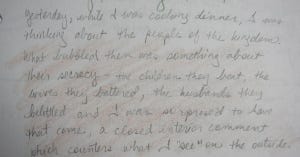 Yesterday, while I was cooking dinner, I was
thinking about the people of the kingdom.
What bubbled then was something about
their secrecy – the children they beat, the
wives they battered, the husbands they
belittled and I was surprised to have
that come, a closed interior comment
which counters what I "see" on the outside.